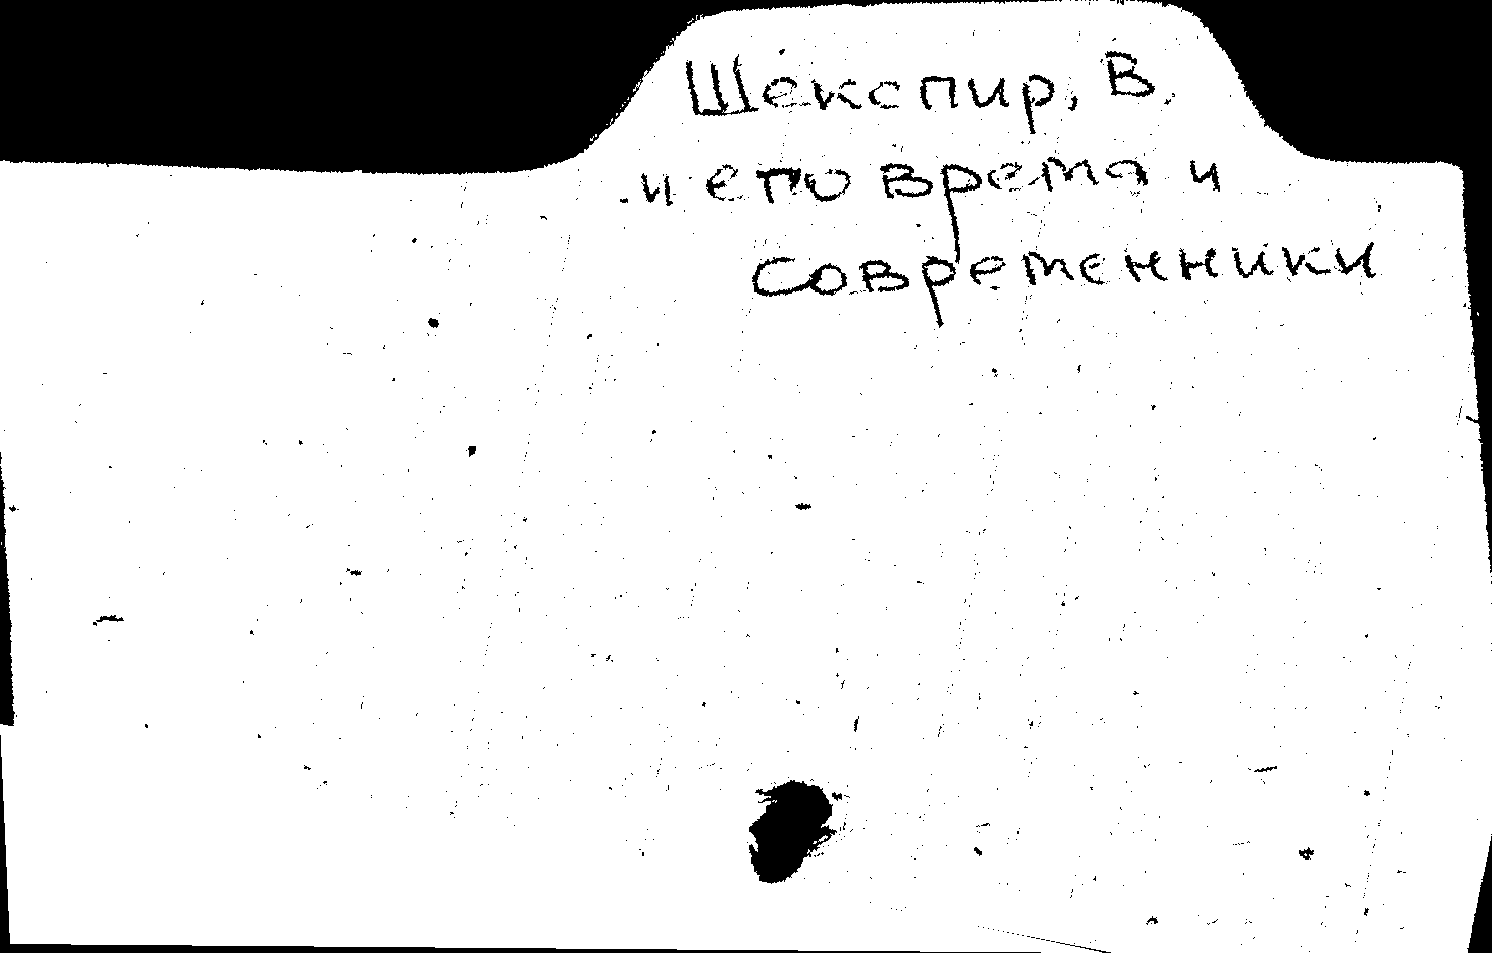 Шекспир, В.
и его время и
современники